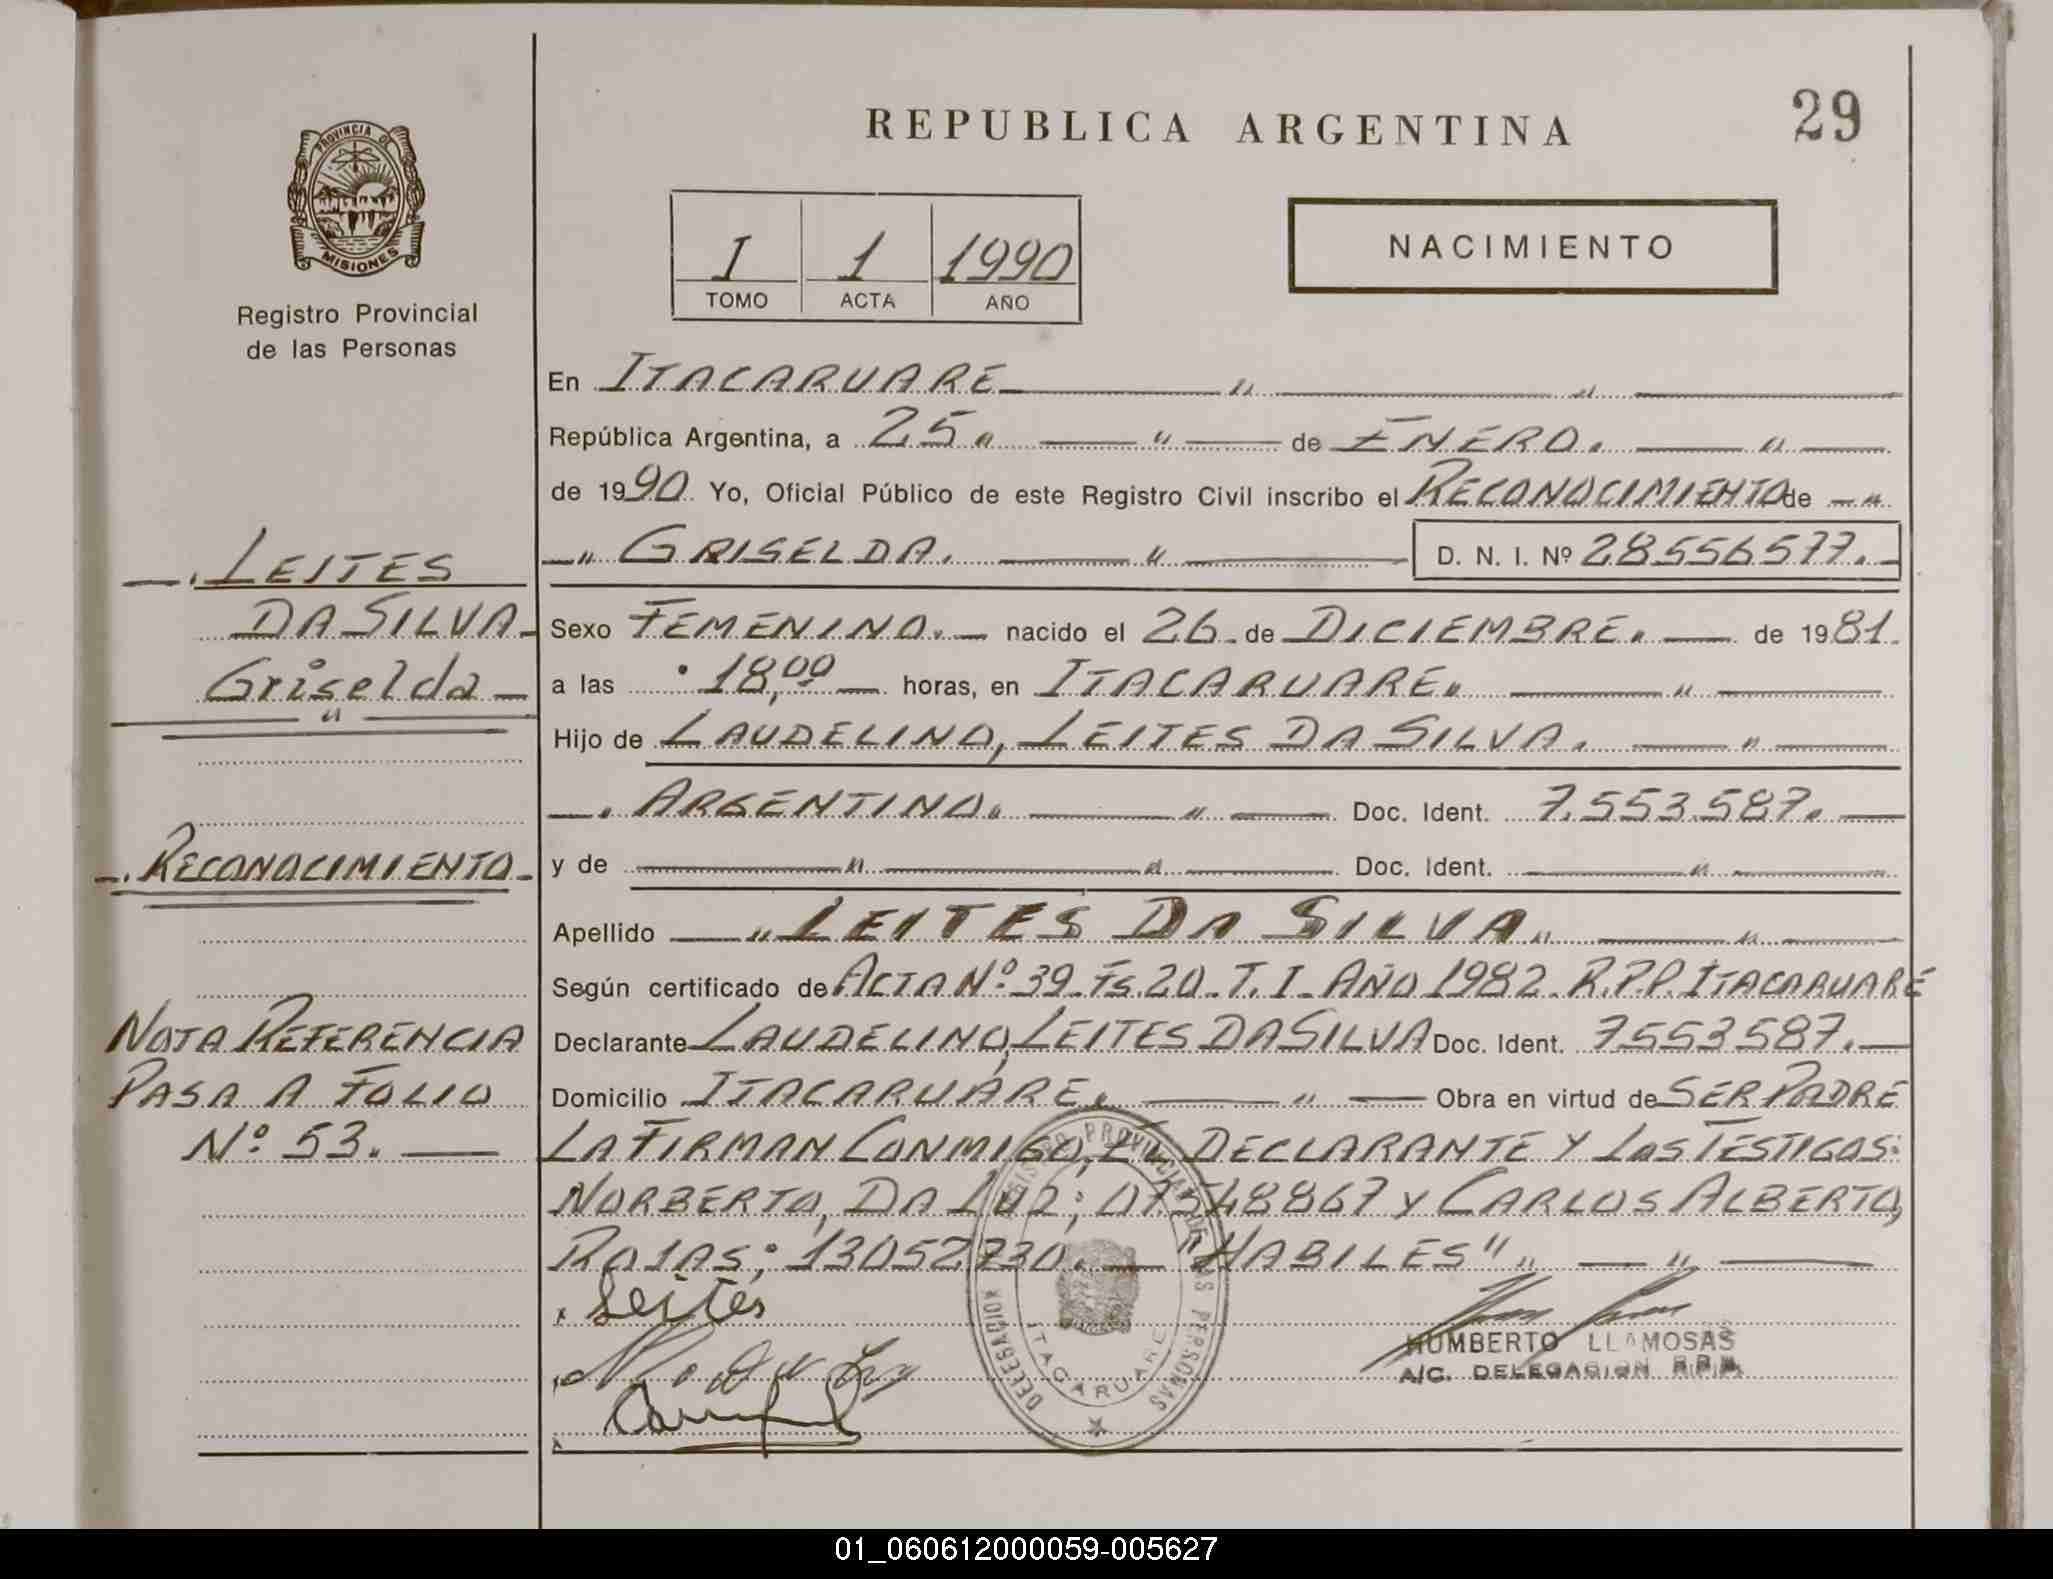 REPUBLICA ARGENTINA
29
PROVINCIA DE
MISIONES
Registro Provincial
de las Personas
I 1 1990
TOMO ACTA AÑO
NACIMIENTO
En ITACARUARE
República Argentina, a 25 de ENERO.
de 1990 Yo, Oficial Público de este Registro Civil inscribo el RECONOCIMIENTO de
GRISELDA. D. N. I. Nº 28556577.
LEITES
DA SILVA
Griselda
Sexo FEMENINO. nacido el 26 de DICIEMBRE. de 1981.
a las 18,00 horas, en ITACARUARE.
Hijo de LAUDELINO, LEITES DA SILVA.
ARGENTINO. Doc. Ident. 7.553.587.
y de Doc. Ident.
RECONOCIMIENTO
Apellido LEITES DA SILVA
Según certificado de ACTA Nº 39 Fs. 20 T. I. AÑO 1982. R.P.P. ITACARUARE
NOTA REFERENCIA
PASA A FOLIO
Nº 53.
Declarante LAUDELINO, LEITES DA SILVA Doc. Ident. 7553587.
Domicilio ITACARUARE. Obra en virtud de SER PADRE
LA FIRMAN CONMIGO, EL DECLARANTE Y LOS TESTIGOS:
NORBERTO, DA LUZ; 07548867 Y CARLOS ALBERTO,
ROJAS; 13052730. "HABILES"
Leites
HUMBERTO LLAMOSAS
A/C. DELEGACION R.P.P.
REGISTRO PROVINCIAL DE LAS PERSONAS
DELEGACION
ITACARUARE
01_060612000059-005627